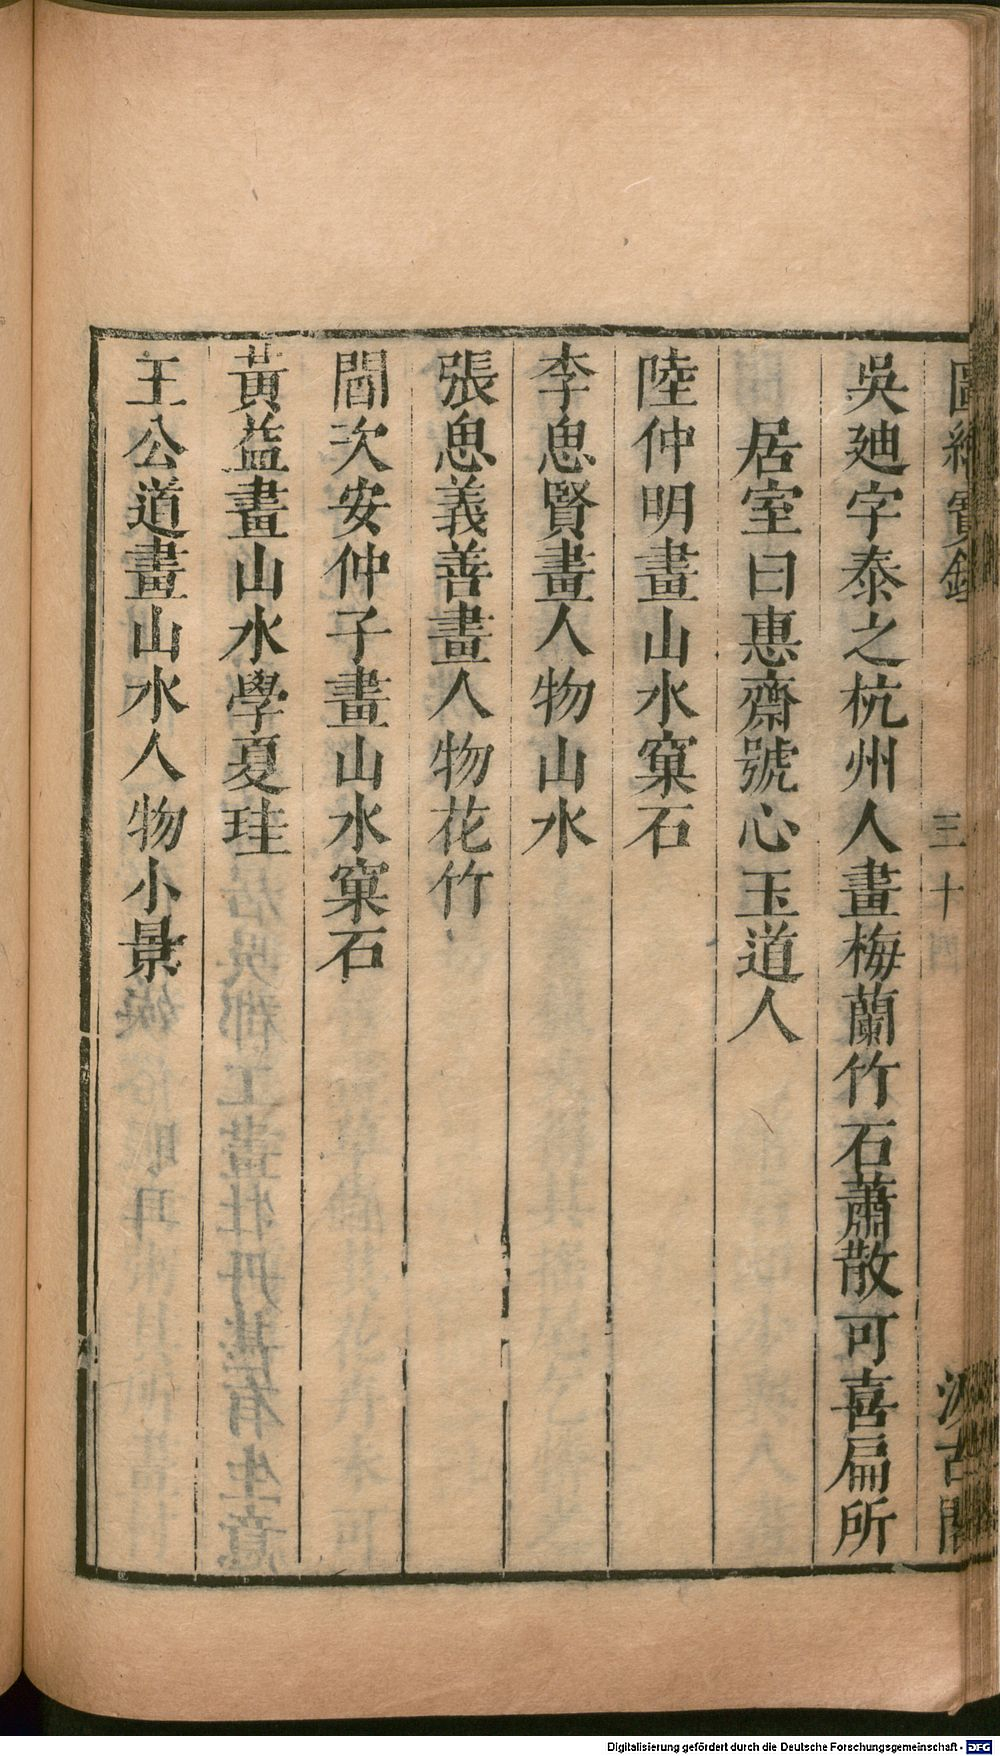 圖繪寶鑑 三十四 汲古閣
吳廸字泰之杭州人畫梅蘭竹石蕭散可喜扁所
居室曰惠齋號心玉道人
陸仲明畫山水窠石
李思賢畫人物山水
張思義善畫人物花竹
閻次安仲子畫山水窠石
黃益畫山水學夏珪
王公道畫山水人物小景
Digitalisierung gefördert durch die Deutsche Forschungsgemeinschaft - DFG